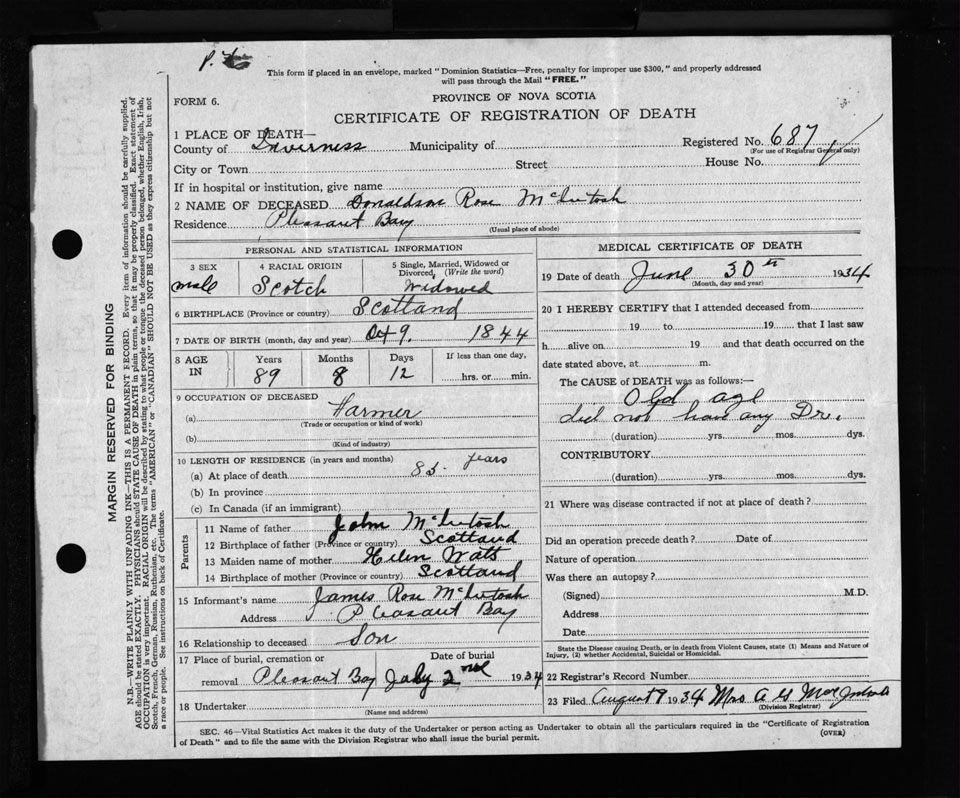 This form if placed in an envelope, marked "Dominion Statistics—Free, penalty for improper use $300," and properly addressed
will pass through the Mail "FREE."
FORM 6.
PROVINCE OF NOVA SCOTIA
CERTIFICATE OF REGISTRATION OF DEATH
1 PLACE OF DEATH—
County of Inverness Municipality of Registered No. 687
(For use of Registrar General only)
City or Town Street House No.
If in hospital or institution, give name
2 NAME OF DECEASED Donaldson Rose McIntosh
Residence Pleasant Bay
(Usual place of abode)
PERSONAL AND STATISTICAL INFORMATION
3 SEX 4 RACIAL ORIGIN 5 Single, Married, Widowed or
Divorced, (Write the word)
male Scotch Widowed
6 BIRTHPLACE (Province or country) Scotland
7 DATE OF BIRTH (month, day and year) Oct 9. 1844
8 AGE IN Years Months Days If less than one day,
89 8 12 hrs. or min.
9 OCCUPATION OF DECEASED
(a) Farmer
(Trade or occupation or kind of work)
(b)
(Kind of industry)
10 LENGTH OF RESIDENCE (in years and months)
(a) At place of death years
(b) In province
(c) In Canada (if an immigrant)
Parents
11 Name of father John McIntosh
12 Birthplace of father (Province or country) Scotland
13 Maiden name of mother Helen Watts
14 Birthplace of mother (Province or country) Scotland
15 Informant's name James Rose McIntosh
Address Pleasant Bay
16 Relationship to deceased Son
17 Place of burial, cremation or Date of burial
removal Pleasant Bay July 2nd 1934
18 Undertaker
(Name and address)
MEDICAL CERTIFICATE OF DEATH
19 Date of death June 30th 1934
(Month, day and year)
20 I HEREBY CERTIFY that I attended deceased from
19 to 19 that I last saw
h alive on 19 and that death occurred on the
date stated above, at m.
The CAUSE OF DEATH was as follows:—
Old age
did not have any Dr.
(duration) yrs. mos. dys.
CONTRIBUTORY
(duration) yrs. mos. dys.
21 Where was disease contracted if not at place of death?
Did an operation precede death? Date of
Nature of operation
Was there an autopsy?
(Signed) M.D.
Address
Date
State the Disease causing Death, or in death from Violent Causes, state (1) Means and Nature of
Injury, (2) whether Accidental, Suicidal or Homicidal.
22 Registrar's Record Number
23 Filed August 8 1934 Mrs A G
(Division Registrar)
SEC. 46—Vital Statistics Act makes it the duty of the Undertaker or person acting as Undertaker to obtain all the particulars required in the "Certificate of Registration
of Death" and to file the same with the Division Registrar who shall issue the burial permit.
(OVER)
MARGIN RESERVED FOR BINDING
N.B.—WRITE PLAINLY WITH UNFADING INK—THIS IS A PERMANENT RECORD. Every item of information should be carefully supplied.
AGE should be stated EXACTLY. PHYSICIANS should STATE CAUSE OF DEATH in plain terms, so that it may be properly classified. Exact statement of
OCCUPATION is very important. RACIAL ORIGIN will be described by stating to what people or tongue the deceased person belonged, whether English, Irish,
Scotch, French, German, Russian, Ruthenian, etc. The terms "AMERICAN" or "CANADIAN" SHOULD NOT BE USED as they express citizenship but not
a race or people. See instructions on back of Certificate.